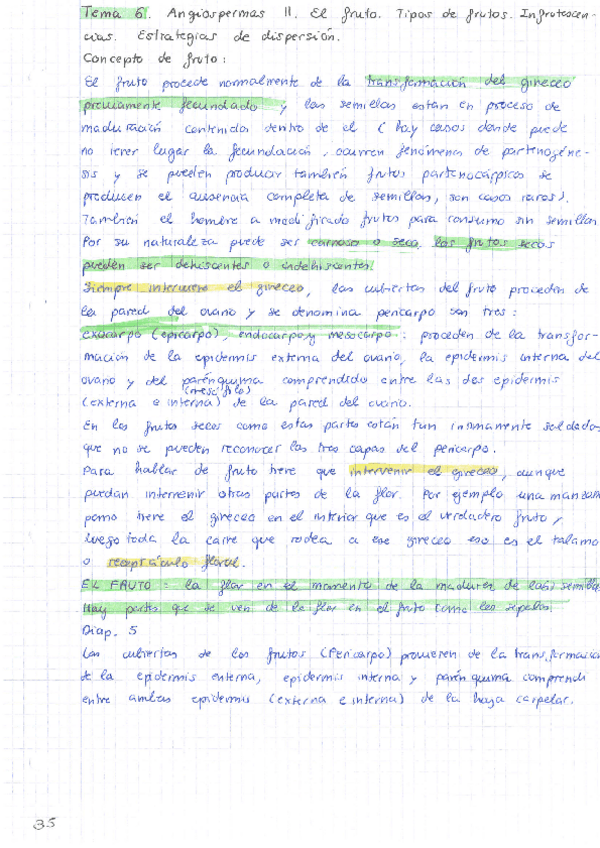 Tema 6. Angiospermas II. El fruto. Tipos de frutos. Infrutescen-
cias. Estrategias de dispersión.
Concepto de fruto:
El fruto procede normalmente de la transformación del gineceo
previamente fecundado y las semillas están en proceso de
maduración contenida dentro de el (hay casos donde puede
no tener lugar la fecundación, ocurren fenómenos de partenogéne-
sis y se pueden producir también frutos partenocárpicos se
producen el ausencia completa de semillas, son casos raros).
También el hombre a modificado frutos para consumo sin semillas
Por su naturaleza puede ser carnoso o seco, los frutos secos
pueden ser dehiscentes o indehiscentes.
Siempre interviene el gineceo, las cubiertas del fruto proceden de
la pared del ovario y se denomina pericarpo son tres:
exocarpo (epicarpo), endocarpo y mesocarpo: proceden de la transfor-
mación de la epidermis externa del ovario, la epidermis interna del
ovario y del parénquima comprendido entre las dos epidermis
(mesófilo)
(externa e interna) de la pared del ovario.
En los frutos secos como estas partes están tan intimamente soldadas
que no se pueden reconocer las tres capas del pericarpo.
Para hablar de fruto tiene que intervenir el gineceo, aunque
puedan intervenir otras partes de la flor. Por ejemplo una manzana
pomo tiene el gineceo en el interior que es el verdadero fruto,
luego toda la carne que rodea a ese gineceo eso es el tálamo
o receptáculo floral.
EL FRUTO = la flor en el momento de la madurez de la(s) semillas
Hay partes que se ven de la flor en el fruto como los sépalos
Diap. 5
Las cubiertas de los frutos (Pericarpo) provienen de la transformación
de la epidermis externa, epidermis interna y parénquima comprendi
entre ambas epidermis (externa e interna) de la hoja carpelar.
35